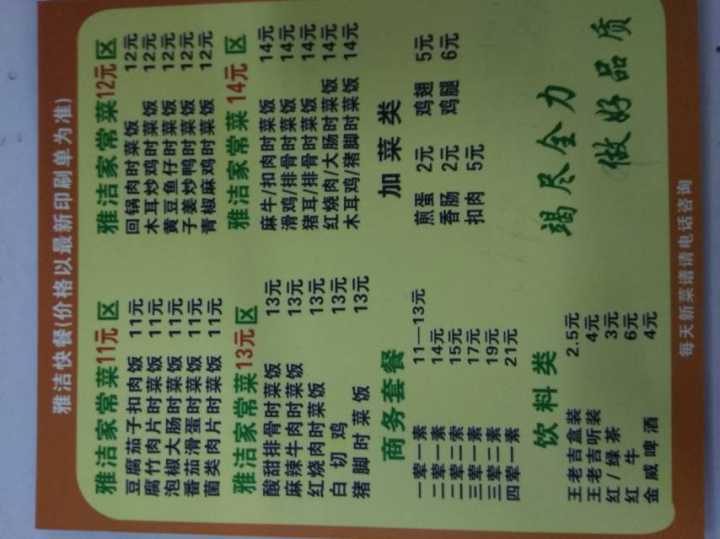 雅洁快餐(价格以最新印刷单为准)
雅洁家常菜11元区
豆腐茄子扣肉饭 11元
腐竹肉片时菜饭 11元
泡椒大肠时菜饭 11元
番茄滑蛋时菜饭 11元
菌类肉片时菜饭 11元
雅洁家常菜12元区
回锅肉时菜饭 12元
木耳炒鸡时菜饭 12元
黄豆鱼仔时菜饭 12元
子姜炒鸭时菜饭 12元
青椒麻鸡时菜饭 12元
雅洁家常菜13元区
酸甜排骨时菜饭 13元
麻辣牛肉时菜饭 13元
红烧肉时菜饭 13元
白切鸡 13元
猪脚时菜饭 13元
雅洁家常菜14元区
麻牛/扣肉时菜饭 14元
滑鸡/排骨时菜饭 14元
猪耳/排骨时菜饭 14元
红烧肉/大肠时菜饭 14元
木耳鸡/猪脚时菜饭 14元
商务套餐
一荤一素 11—13元
二荤一素 14元
二荤二素 15元
三荤一素 17元
三荤二素 19元
四荤一素 21元
加菜类
煎蛋 2元 鸡翅 5元
香肠 2元 鸡腿 6元
扣肉 5元
饮料类
王老吉盒装 2.5元
王老吉听装 4元
红/绿茶 3元
红牛 6元
金威啤酒 4元
竭尽全力
做好品质
每天新菜谱请电话咨询